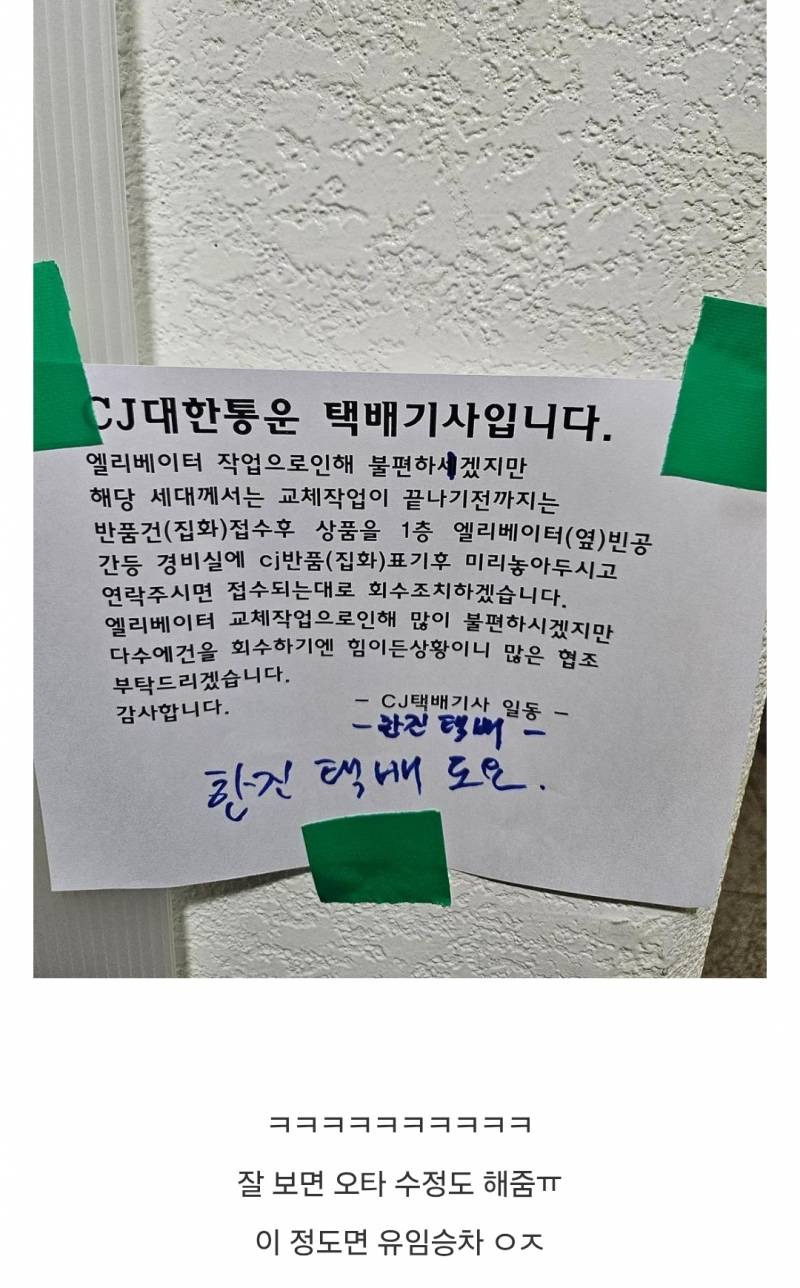 CJ대한통운 택배기사입니다.
엘리베이터 작업으로인해 불편하시겠지만
해당 세대께서는 교체작업이 끝나기전까지는
반품건(집화)접수후 상품을 1층 엘리베이터(옆)빈공
간등 경비실에 cj반품(집화)표기후 미리놓아두시고
연락주시면 접수되는대로 회수조치하겠습니다.
엘리베이터 교체작업으로인해 많이 불편하시겠지만
다수에건을 회수하기엔 힘이든상황이니 많은 협조
부탁드리겠습니다.
감사합니다.
- CJ택배기사 일동 -
- 한진 택배 -
한진 택배 도요.
ㅋㅋㅋㅋㅋㅋㅋㅋㅋㅋ
잘 보면 오타 수정도 해줌ㅠ
이 정도면 유임승차 ㅇㅈ